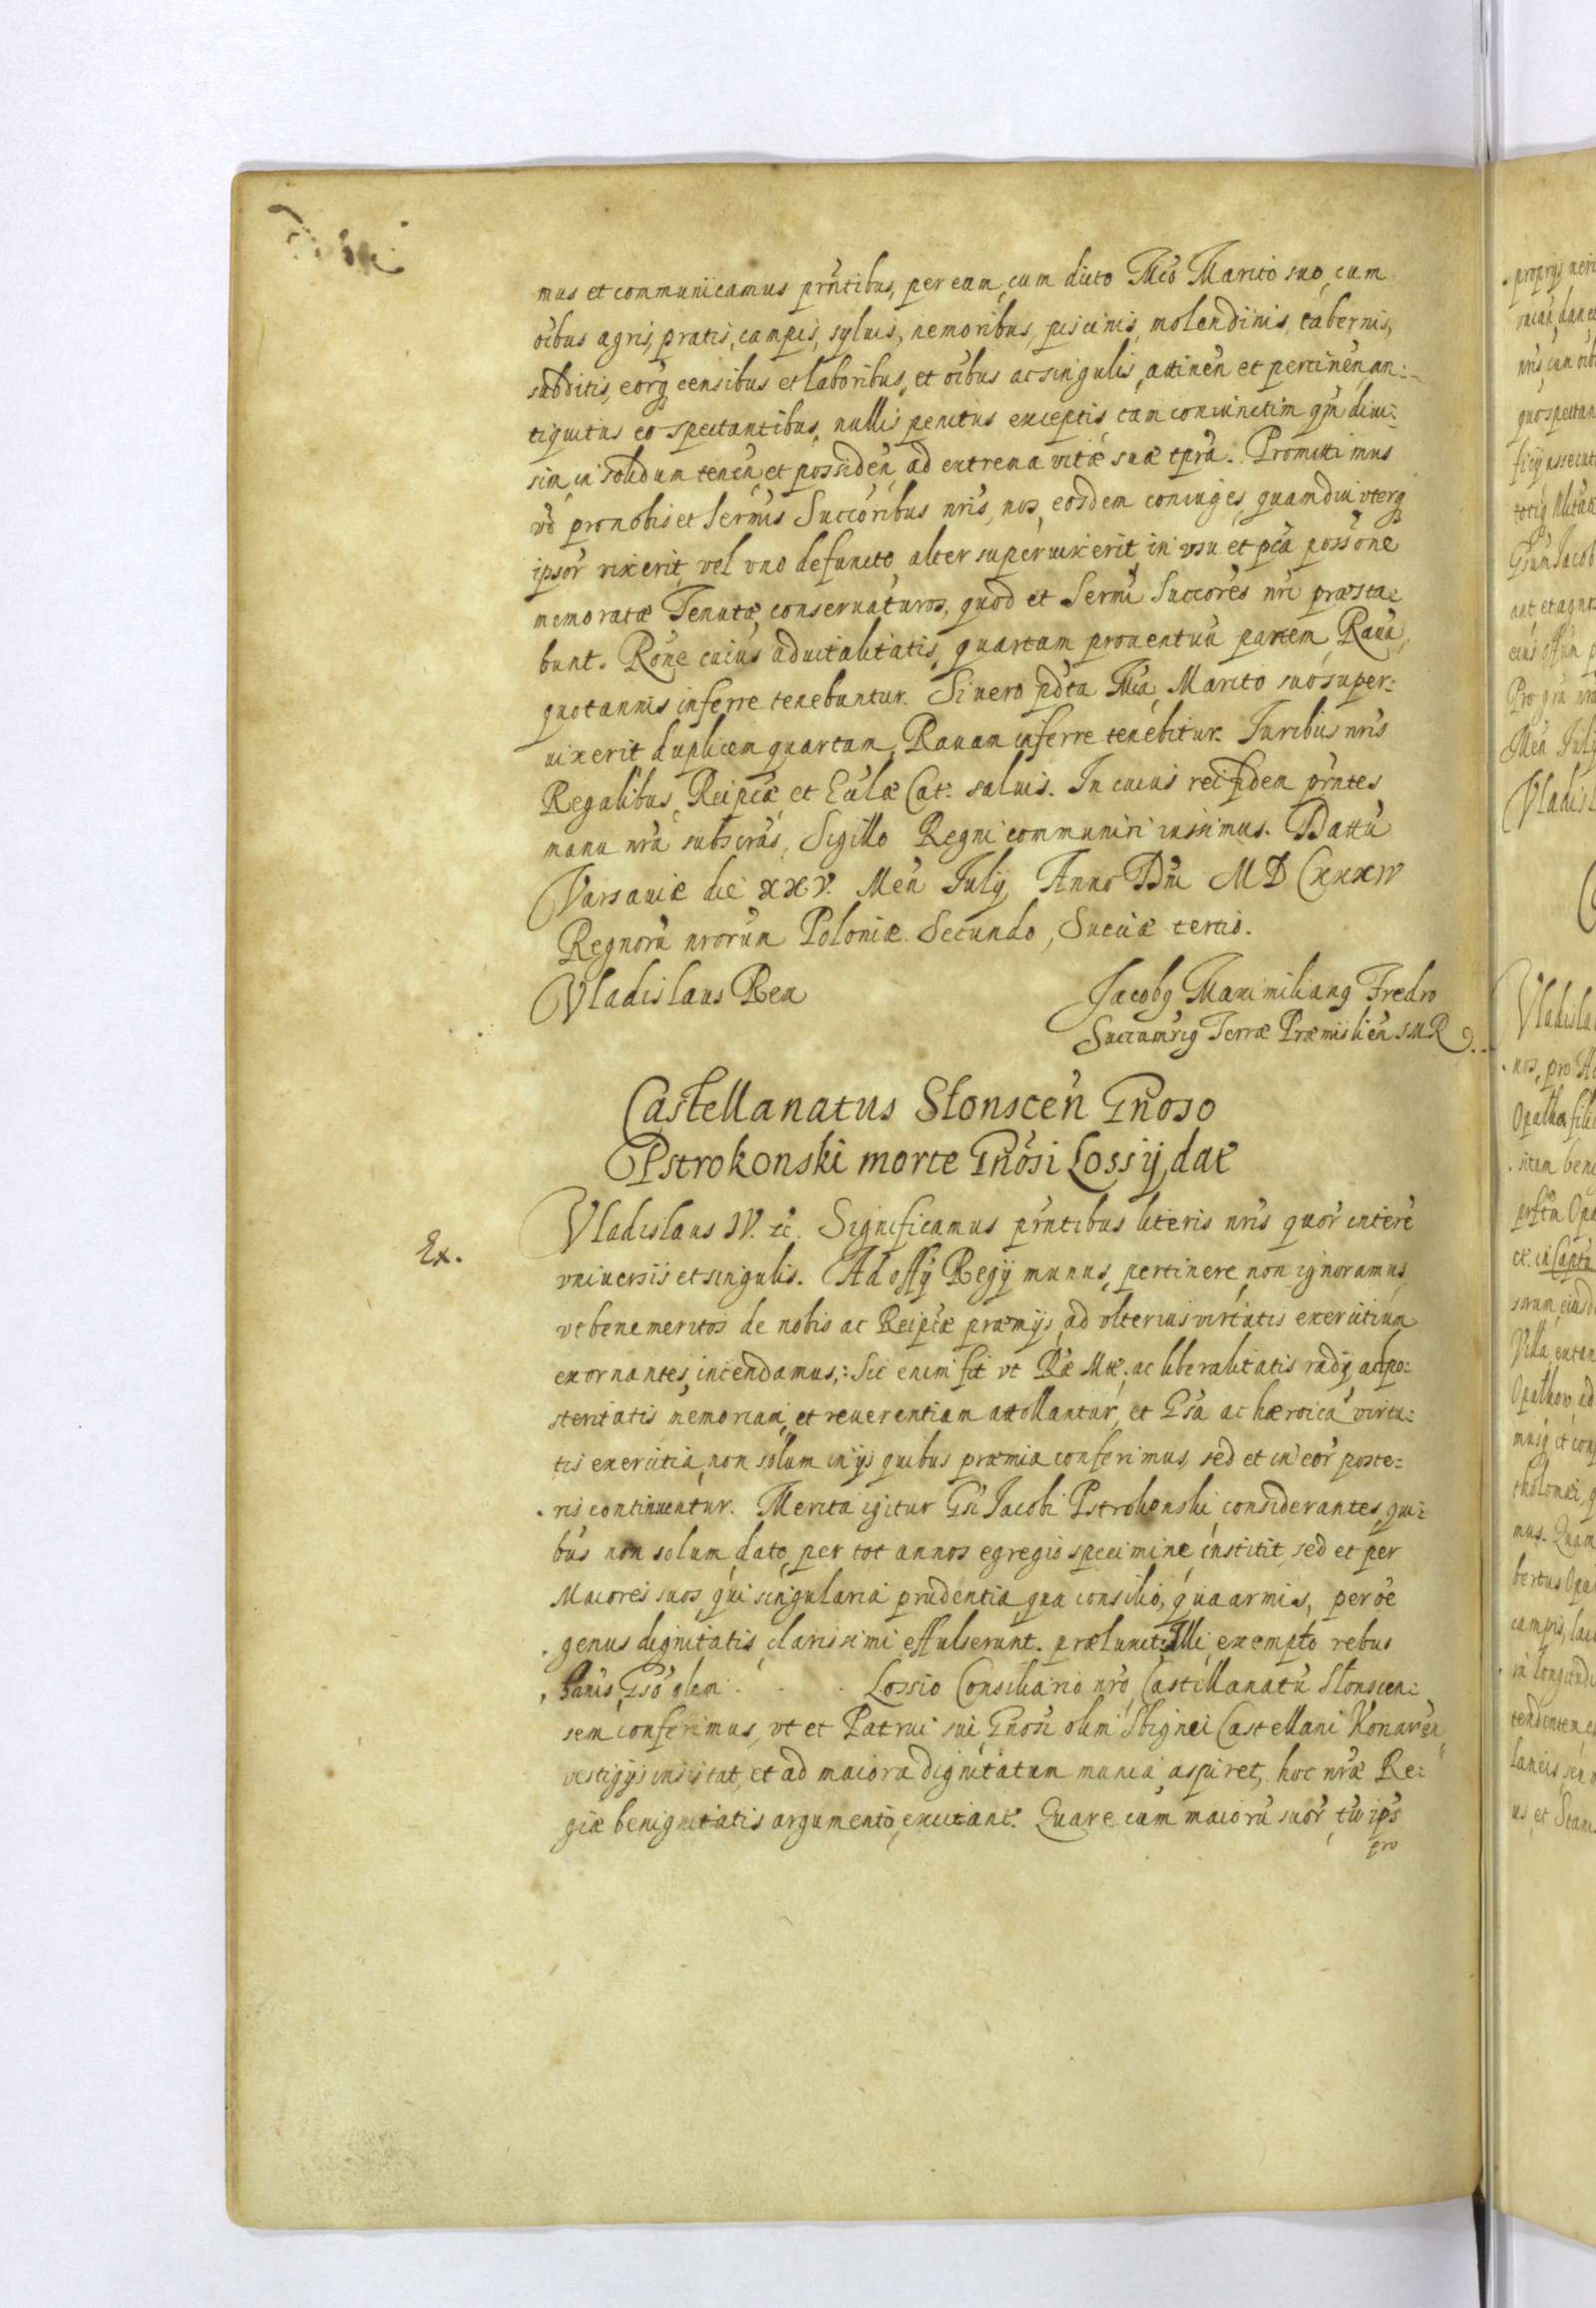 mus et communicamus prñtibus, per eam cum dicto Mco Marito suo, cum
oibus agris, pratis, campis, syluis, nemoribus, piscinis, molendinis, tabernis,
subditis, eorq censibus et laboribus, et oibus ac singulis, attineñ et pertineñ an:
tiquitus eo spectantibus, nullis penitus exceptis tam coniunctim qm diui:
sim in solidum teneñ et possideñ ad extrema vitæ suæ tpra. Promittimus
vo pro nobis et Sermis Succoribus nris, nos eosdem coniuges, quamdiu vterq
ipsor vixerit, vel vno defuncto alter superuixerit, in vsu et pca possone
memoratæ Tenutæ conseruaturos, quod et Sermi Succores nri præsta:
bunt. Rone cuius aduitalitatis, quartam prouentuu partem Raua,
quotannis inferre tenebuntur. Si uero pdta Mca Marito suo super:
uixerit duplicem quartam Rauam inferre tenebitur. Iuribus nris
Regalibus, Reipcæ et Ecclæ Cat. saluis. In cuius rei fidem prñtes
manu nra subscras, Sigillo Regni communiri iussimus. Dattu
Varsauiæ die XXV. Meñ Iulij Anno Dñi MDCXXXIV
Regnoru nrorum Poloniæ Secundo, Sueciæ tertio.
Vladislaus Rex
Jacobg Maximiliang Fredro
Succamrig Terræ Præmislieñ SMR
Castellanatus Słonsceñ Gnoso
Pstrokonski morte Gnosi Lossij dat
Ex.
Vladislaus IV. &c. Significamus prñtibus literis nris quor intere
vniuersis et singulis. Ad offij Regij munus, pertinere non ignoramus
vt benemeritos de nobis ac Reipcæ præmijs, ad vlterius virtutis exercitium
exornantes, incendamus: Sic enim fit vt Ræ Mtt. ac liberalitatis radij, ad po:
steritatis memoriam, et reuerentiam attollantur, et Gsa ac hæroica virtu:
tis exercitia, non solum in ijs quibus præmia conferimus, sed et in eor poste:
ris continuentur. Merita igitur Gsi Jacobi Pstrokonski considerantes, qui:
bus non solum dato per tot annos egregio specimine institit, sed et per
Maiores suos, qui singulari prudentia, qua consilio, qua armis, per oe
genus dignitatis clarissimi effulserunt. prælucet. Illi exempto rebus
hanis Gso olim . . . Lossio Consiliario nro, Castellanatu Słonscen:
sem conferimus, vt et Patrui sui Gnosi olim Sbignei Castellani Konareñ
vestigijs insistat, et ad maiora dignitatum munia aspiret, hoc nræ Re:
giæ benignitatis argumento, excitant. Quare cum maioru suor, tu ips
pro